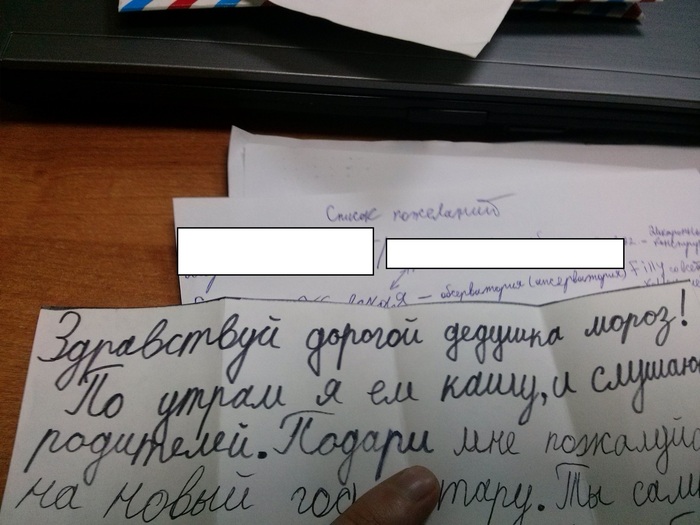 Список пожеланий
— обсерватория (консерватория) Filly
Здравствуй дорогой дедушка мороз!
По утрам я ем кашу, и слушаю
родителей. Подари мне пожалуйс
на новый го тару. Ты сам